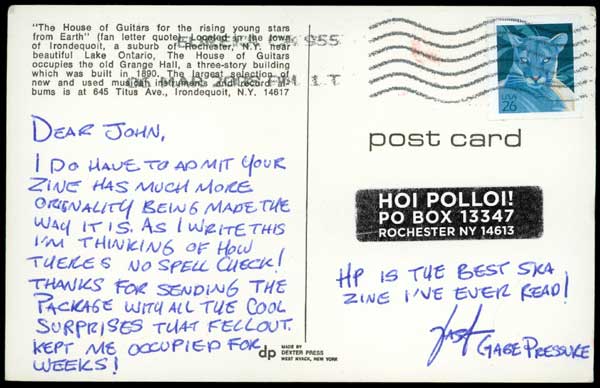 "The House of Guitars for the rising young stars
from Earth" (fan letter quote) Located in the town
of Irondequoit, a suburb of Rochester, N.Y. near
beautiful Lake Ontario, The House of Guitars
occupies the old Grange Hall, a three-story building
which was built in 1890. The largest selection of
new and used musical instruments and record al-
bums is at 645 Titus Ave., Irondequoit, N.Y. 14617
955
MAR 2008 PM 1 T
USA
26
post card
DEAR JOHN,
I DO HAVE TO ADMIT YOUR
ZINE HAS MUCH MORE
ORIGNALITY BEING MADE THE
WAY IT IS. AS I WRITE THIS
I'M THINKING OF HOW
THERE'S NO SPELL CHECK!
THANKS FOR SENDING THE
PACKAGE WITH ALL THE COOL
SURPRISES THAT FELL OUT.
KEPT ME OCCUPIED FOR
WEEKS!
HOI POLLOI!
PO BOX 13347
ROCHESTER NY 14613
HP IS THE BEST SKA
ZINE I'VE EVER READ!
GABE PRESSURE
dp
MADE BY
DEXTER PRESS
WEST NYACK, NEW YORK